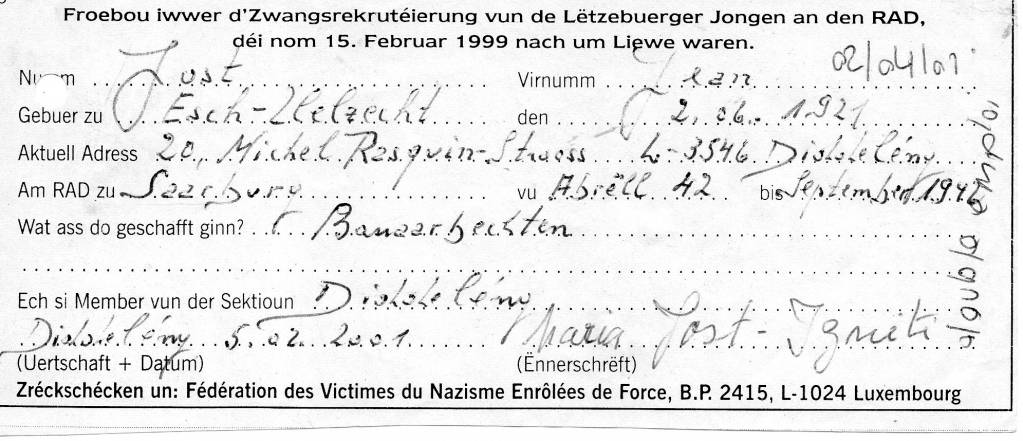 Froebou iwwer d'Zwangsrekrutéierung vun de Lëtzebuerger Jongen an den RAD,
déi nom 15. Februar 1999 nach um Liewe waren.
02/04/01
Numm Jost Virnumm Jean
Gebuer zu Esch-Uelzecht den 2. 06. 1921
Aktuell Adress 20, Michel Rasquin-Strooss L-3546 Diddeléng
Am RAD zu Saarburg vu Abrëll 42 bis September 1942
Wat ass do geschafft ginn? Bauaarbechten
Ech si Member vun der Sektioun Diddeléng
Diddeléng 5. 02. 2001 Maria Jost-
(Uertschaft + Datum) (Ënnerschrëft)
Zréckschécken un: Fédération des Victimes du Nazisme Enrôlées de Force, B.P. 2415, L-1024 Luxembourg